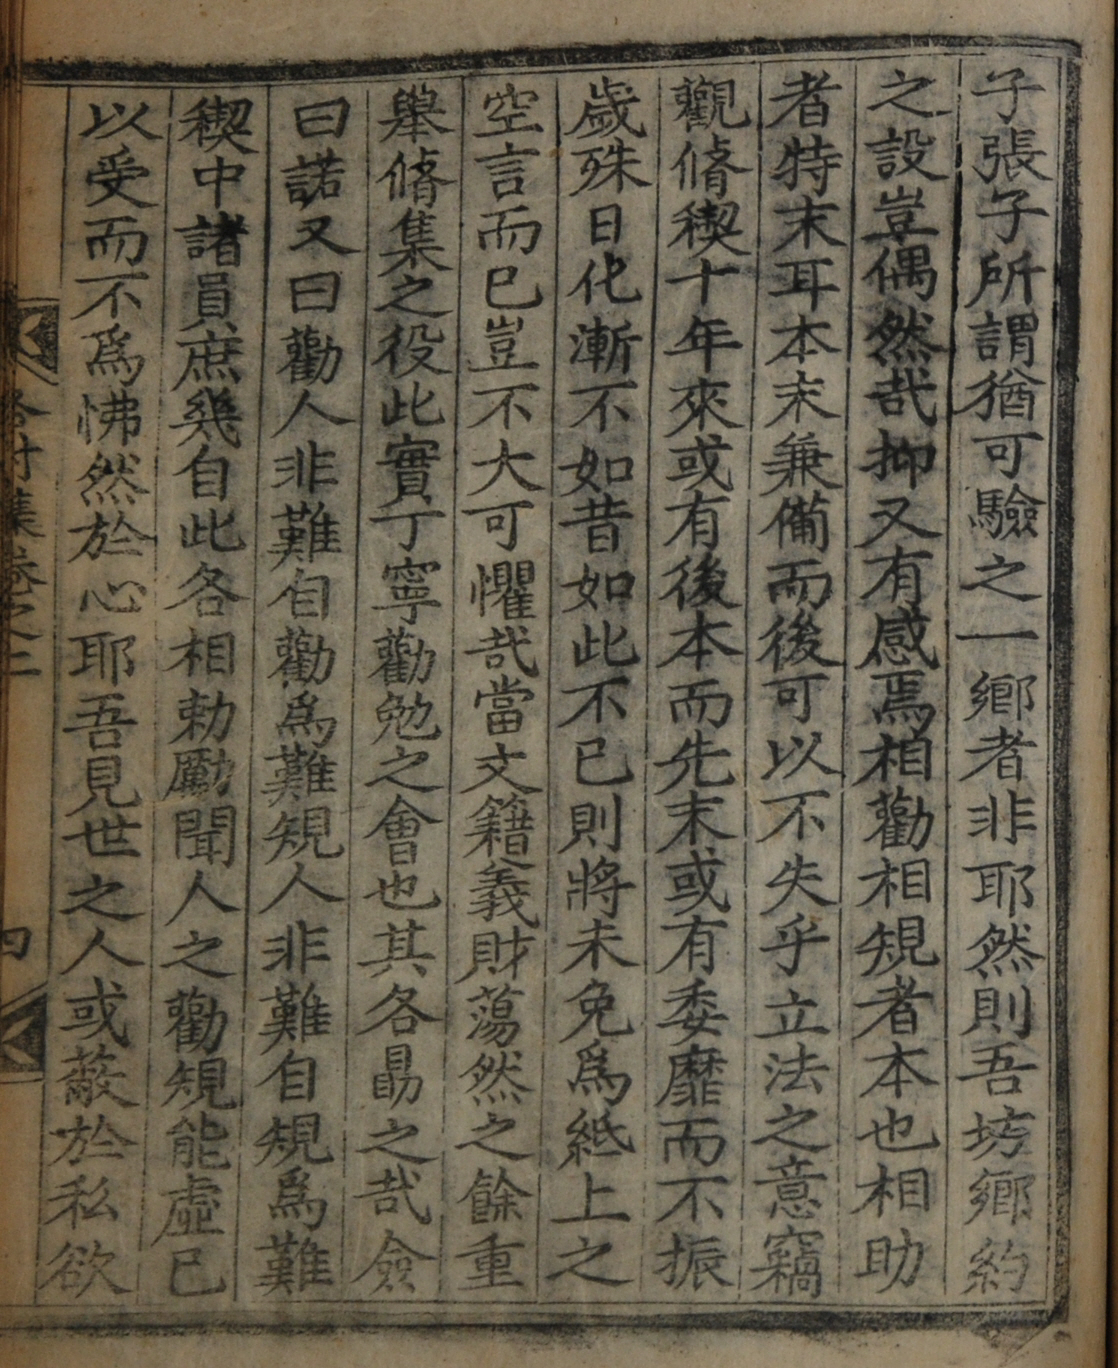 子張子所謂猶可驗之一鄕者非耶然則吾坊鄕約
之設豈偶然哉抑又有感焉相勸相規者本也相助
者特末耳本末兼備而後可以不失乎立法之意竊
觀脩稧十年來或有後本而先末或有委靡而不振
歲殊日化漸不如昔如此不已則將未免爲紙上之
空言而已豈不大可懼哉當文籍義財蕩然之餘重
擧脩集之役此實丁寧勸勉之會也其各勗之哉僉
曰諾又曰勸人非難自勸爲難規人非難自規爲難
稧中諸員庶幾自此各相勅勵聞人之勸規能虛已
以受而不爲怫然於心耶吾見世之人或蔽於私欲